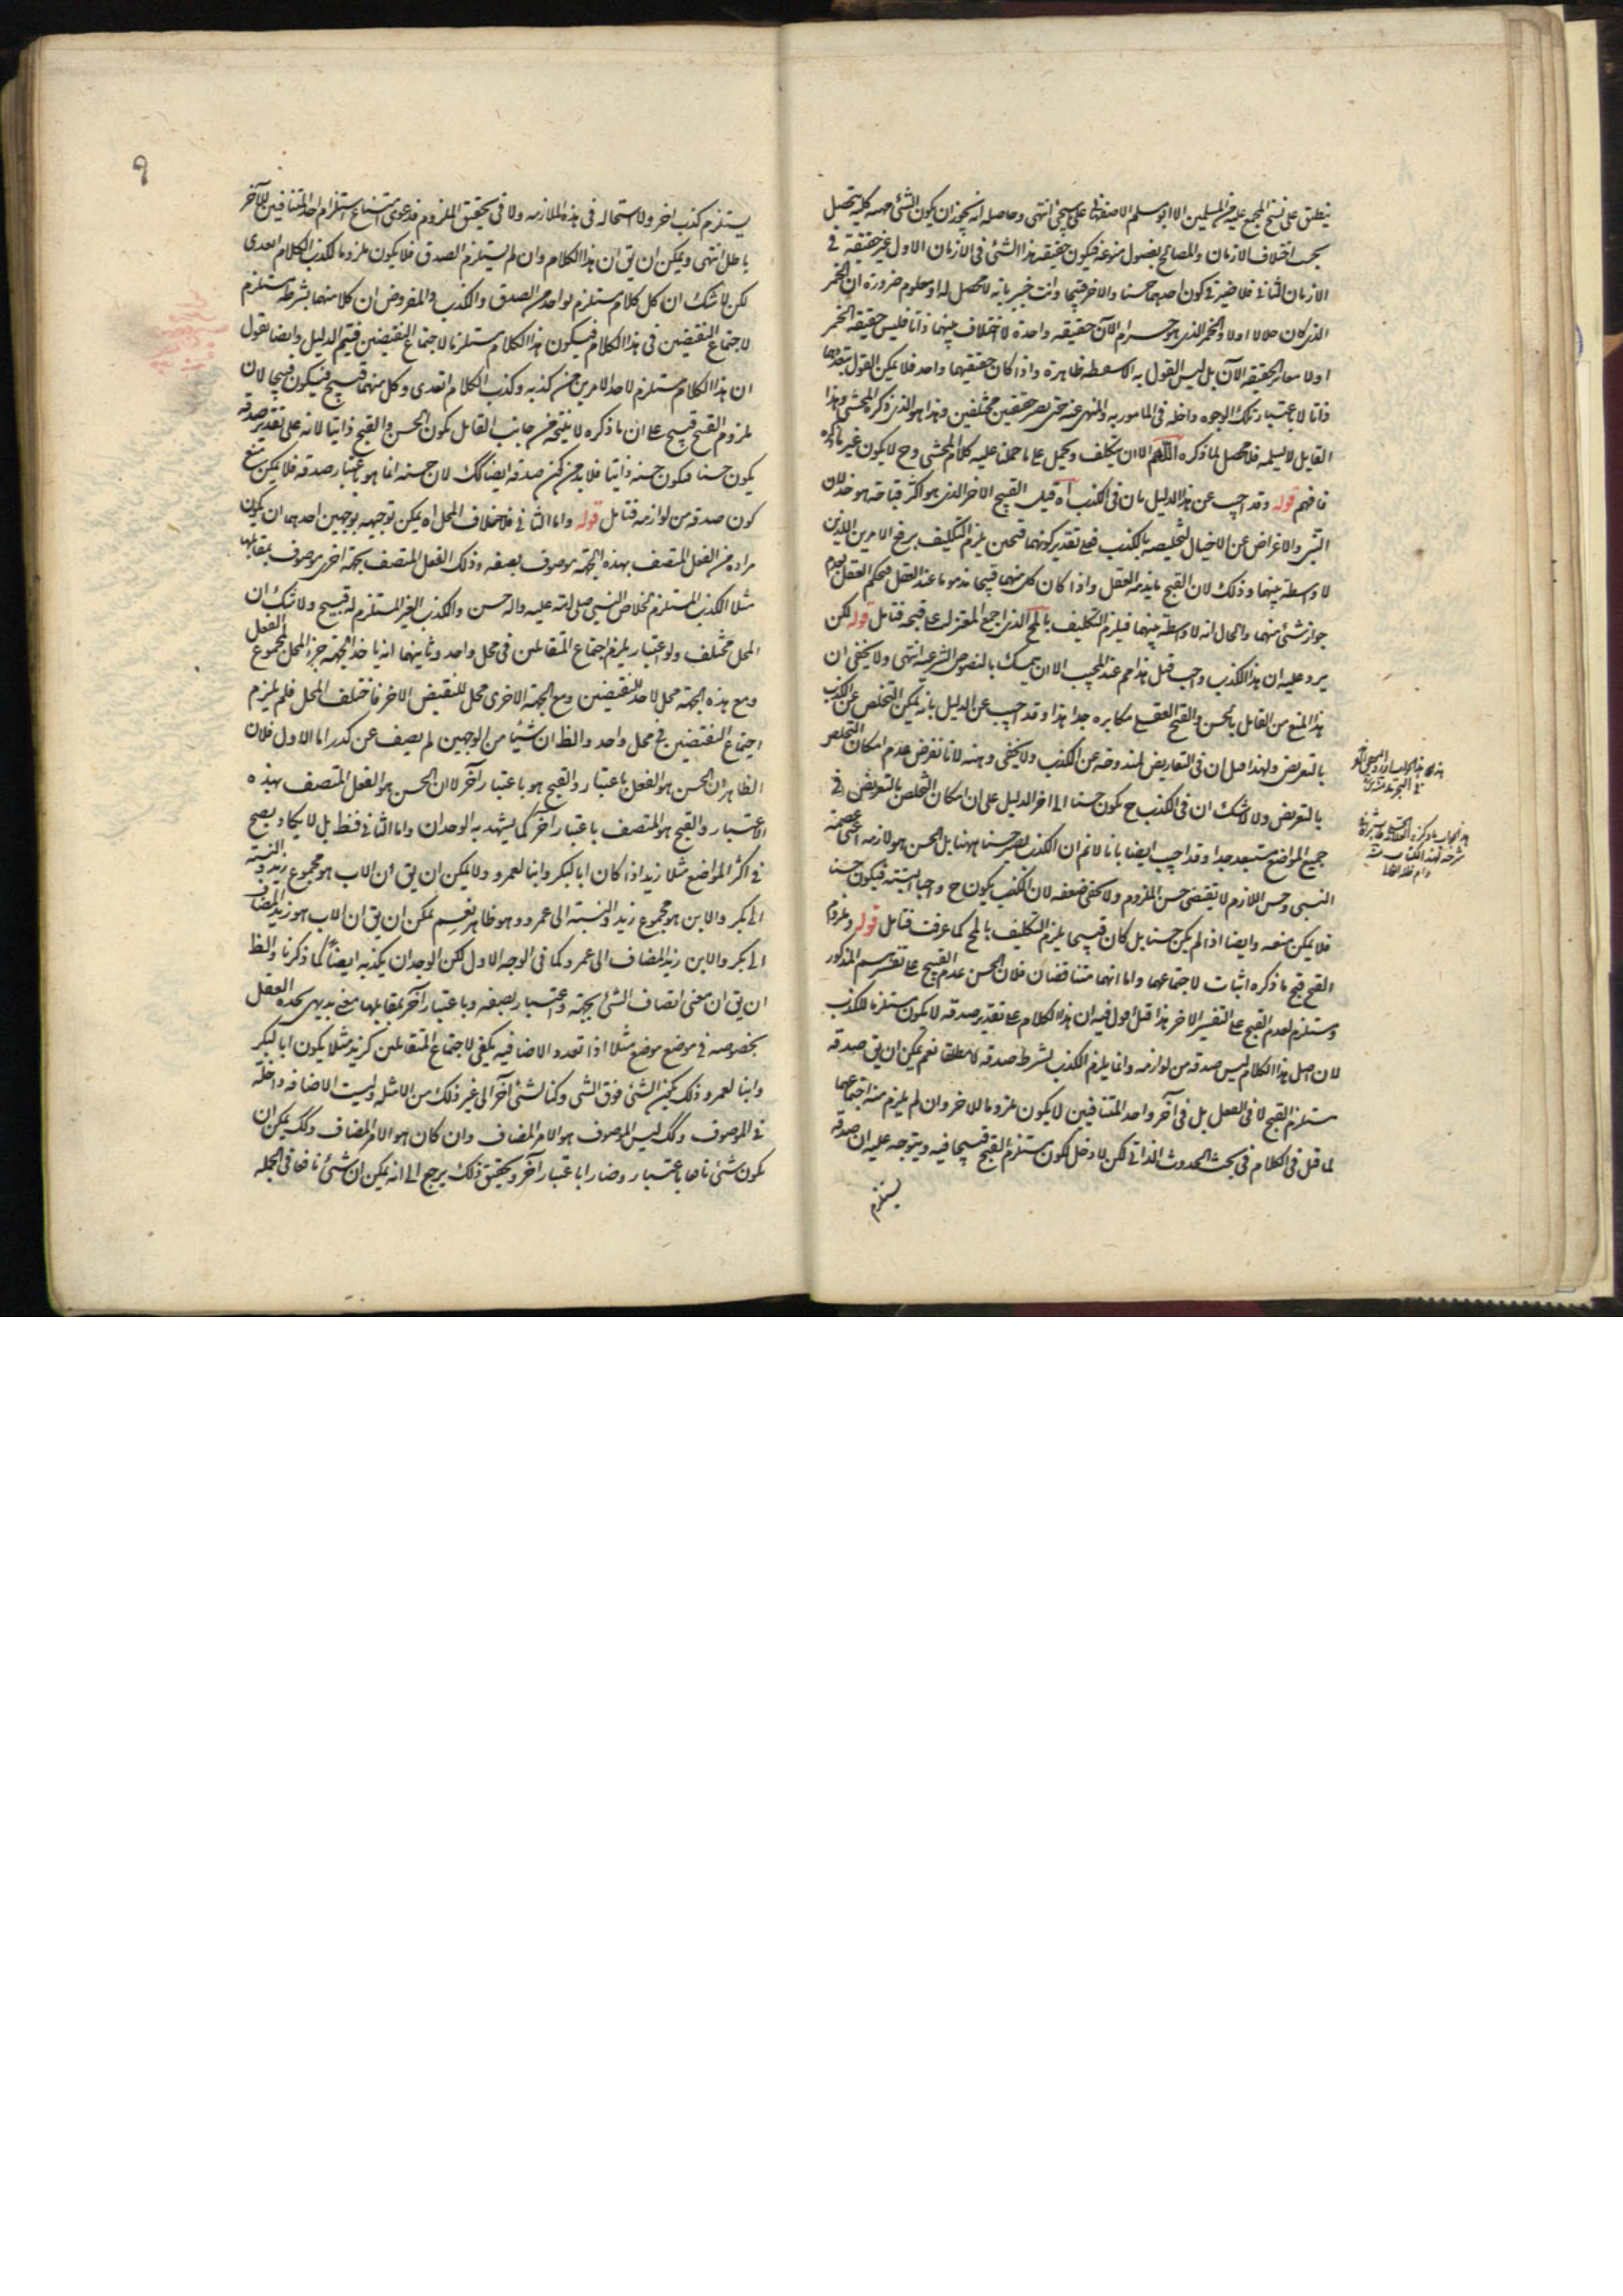 ينطبق على نسخ المجمع عليه من المسلمين الا ابو مسلم الاصفهاني على سيجئ انتهى وحاصله انه يجوز ان يكون الشئ مهية كلية يتحصل
بحسب اختلاف الازمان والمصالح بفصول منوعة فيكون حقيقة هذا الشئ فى الازمان الاول غير حقيقته فى
الازمان الثانى فلا ضير فى كون احدهما حسنا والاخر قبيحا وانت خبير بانه لا محصل له اذ معلوم ضرورة ان الخمر
الذى كان حلالا اولا والخمر الذى هو حرام الآن حقيقة واحدة لا اختلاف بينهما ذاتا فليس حقيقة الخمر
اولا مغاير الحقيقة الآن بل ليس القول به الا سفسطة ظاهرة واذا كان حقيقتهما واحد فلا يمكن القول بتعددهما
ذاتا لا باعتبار تلك الوجوه داخلة فى المامور به والمنهى عنه حتى يصير حقيقتين مختلفين وهذا هو الذى ذكره المحشى وهذا
القايل لا يسلمه فلا محصل لما ذكره اللهم الا ان يتكلف ويحمل على ما حملنا عليه كلام المحشى وح لا يكون غير ما ذكره
فافهم قوله وقد اجيب عن هذا الدليل بان فى الكذب آه قيل القبيح الاخر الذى هو اكثر قباحة هو خذلان
النبى والاغراض عن الاخيال لتخليصه بالكذب فعلى تقدير كونهما قبيحين يلزم التكليف برفع الامرين اللذين
لا واسطة بينهما وذلك لان القبيح ما يذمه العقل واذا كان كل منهما قبيحا مذموما عند العقل فيحكم العقل بعدم
جواز شئ منهما والحال انه لا واسطة بينهما فيلزم التكليف بالمح الذى اجمع المعتزلة على قبحه فتامل قوله لكن
يرد عليه ان هذا الكذب واجب قيل هذا مم عند المجيب الا ان يتمسك بالنصوص الشرعية انتهى ولا يخفى ان
هذا المنع من القايل بالحسن والقبح العقلى مكابرة جدا هذا وقد اجيب عن الدليل بانه يمكن التخلص عن الكذب
بالتعريض ولهذا قيل ان فى التعاريض لمندوحة عن الكذب ولا يخفى وهنه لانا نفرض عدم امكان التخلص
بالتعريض ولا شك ان فى الكذب ح يكون حسنا الى اخر الدليل على ان امكان التخلص بالتعريض فى
جميع المواضع مستبعد جدا وقد اجيب ايضا بانا لا نم ان الكذب يصير حسنا ههنا بل الحسن هو لازمه اعنى عصمة
النبى وحسن اللازم لا يقتضى حسن الملزوم ولا يخفى ضعفه لان الكذب يكون ح واجبا البتة فيكون حسنا
فلا يمكن منعه وايضا اذا لم يكن حسنا بل كان قبيحا يلزم التكليف بالمح كما عرفت فتامل قوله وملزوم
القبح قبيح ما ذكره اثبات لاجتماعهما واما انهما متناقضان فلان الحسن عدم القبيح على تفسيرهم المذكور
ومستلزم لعدم القبح على التفسير الاخر هذا قيل اقول فيه ان هذا الكلام على تقدير صدقه لا يكون مستلزما للكذب
لان اصل هذا الكلام ليس صدقه من لوازمه وانما يلزم الكذب بشرط صدقه لا مطلقا نعم يمكن ان يق صدقه
مستلزم القبح لا فى الفعل بل فى آخر واحد المتنافيين لا يكون ملزوما للاخر وان لم يلزم منه اجتماعهما
لما قيل فى الكلام فى بحث الحدوث الذاتى لكن لا دخل لكون مستلزم القبح قبيحا فيه ويتوجه عليه ان صدقه
يستلزم
يستلزم كذب اخر ولا استحالة فى هذه الملازمة ولا فى تحقيق الملزوم فدعوى امتناع استلزام احد المتنافيين للآخر
باطل انتهى ويمكن ان يق ان هذا الكلام وان لم يستلزم الصدق فلا يكون ملزوما لكذب الكلام الغدى
لكن لا شك ان كل كلام مستلزم لواحد من الصدق والكذب والمفروض ان كلا منهما بشرطه مستلزم
لاجتماع النقيضين فى هذا الكلام فيكون هذا الكلام مستلزما لاجتماع النقيضين فيتم الدليل وايضا نقول
ان هذا الكلام مستلزم لاحد الامرين من كذبه وكذب الكلام الغدى وكل منهما قبيح فيكون قبيحا لان
ملزوم القبح قبيح على ان ما ذكره لا ينتهض من جانب القايل بكون الحسن والقبح ذاتيا لانه على تقدير صدقه
يكون حسنا فيكون حسنه ذاتيا فلا بد من كون صدقه ايضا كك لان حسنه انما هو باعتبار صدقه فلا يمكن منع
كون صدقه من لوازمه فتامل قوله واما الثانى فلاختلاف المحل آه يمكن توجيهه بوجهين احدهما ان يكون
مراده من الفعل المتصف بهذه الجهة موصوف بصفة وذلك الفعل المتصف بجهة اخرى موصوف بمقابلها
مثلا الكذب المستلزم لخلاص النبى صلى الله عليه واله حسن والكذب الغير المستلزم له قبيح ولا شك ان
المحل مختلف ولو اعتبار يلزم اجتماع المتقابلين فى محل واحد وثانيهما انه ياخذ الجهة جزء المحل فمجموع الفعل
ومع هذه الجهة محل لاحد النقيضين ومع الجهة الاخرى محل للنقيض الاخر فاختلف المحل فلم يلزم
اجتماع النقيضين فى محل واحد والظ ان شيئا من الوجهين لم يصف عن كدر اما الاول فلان
الظاهر ان الحسن هو الفعل باعتبار والقبيح هو باعتبار آخر لا ان الحسن هو الفعل المتصف بهذه
الاعتبار والقبيح هو المتصف باعتبار آخر كما يشهد به الوجدان واما الثانى فقط بل لا يكاد يصح
فى اكثر المواضع مثلا زيد اذا كان ابا لبكر وابنا لعمرو ولا يمكن ان يق ان الاب هو مجموع زيد والنسبة
الى بكر والابن هو مجموع زيد والنسبة الى عمرو وهو ظاهر نعم يمكن ان يق ان الاب هو زيد المضاف
الى بكر والابن زيد المضاف الى عمرو كما فى الوجه الاول لكن الوجدان يكذبه ايضا كما ذكرنا والظ
ان يق ان معنى اتصاف الشئ بجهة واعتبار بصفة وباعتبار آخر بمقابلها معنى بديهى يجده العقل
بخصوصه فى موضع موضع مثلا اذا تعدد الاضافة يكفى لاجتماع المتقابلين كزيد مثلا يكون ابا لبكر
وابنا لعمرو وذلك ككون الشئ فوق الشئ وتحتا لشئ آخر الى غير ذلك من الامثلة وليست الاضافة داخلة
فى الموصوف وكك ليس الموصوف هو الامر المضاف وان كان هو الامر المضاف وكك يمكن ان
يكون شئ نافعا باعتبار وضارا باعتبار آخر وتحقيق ذلك يرجع الى انه يمكن ان شئ نافعا فى الجملة